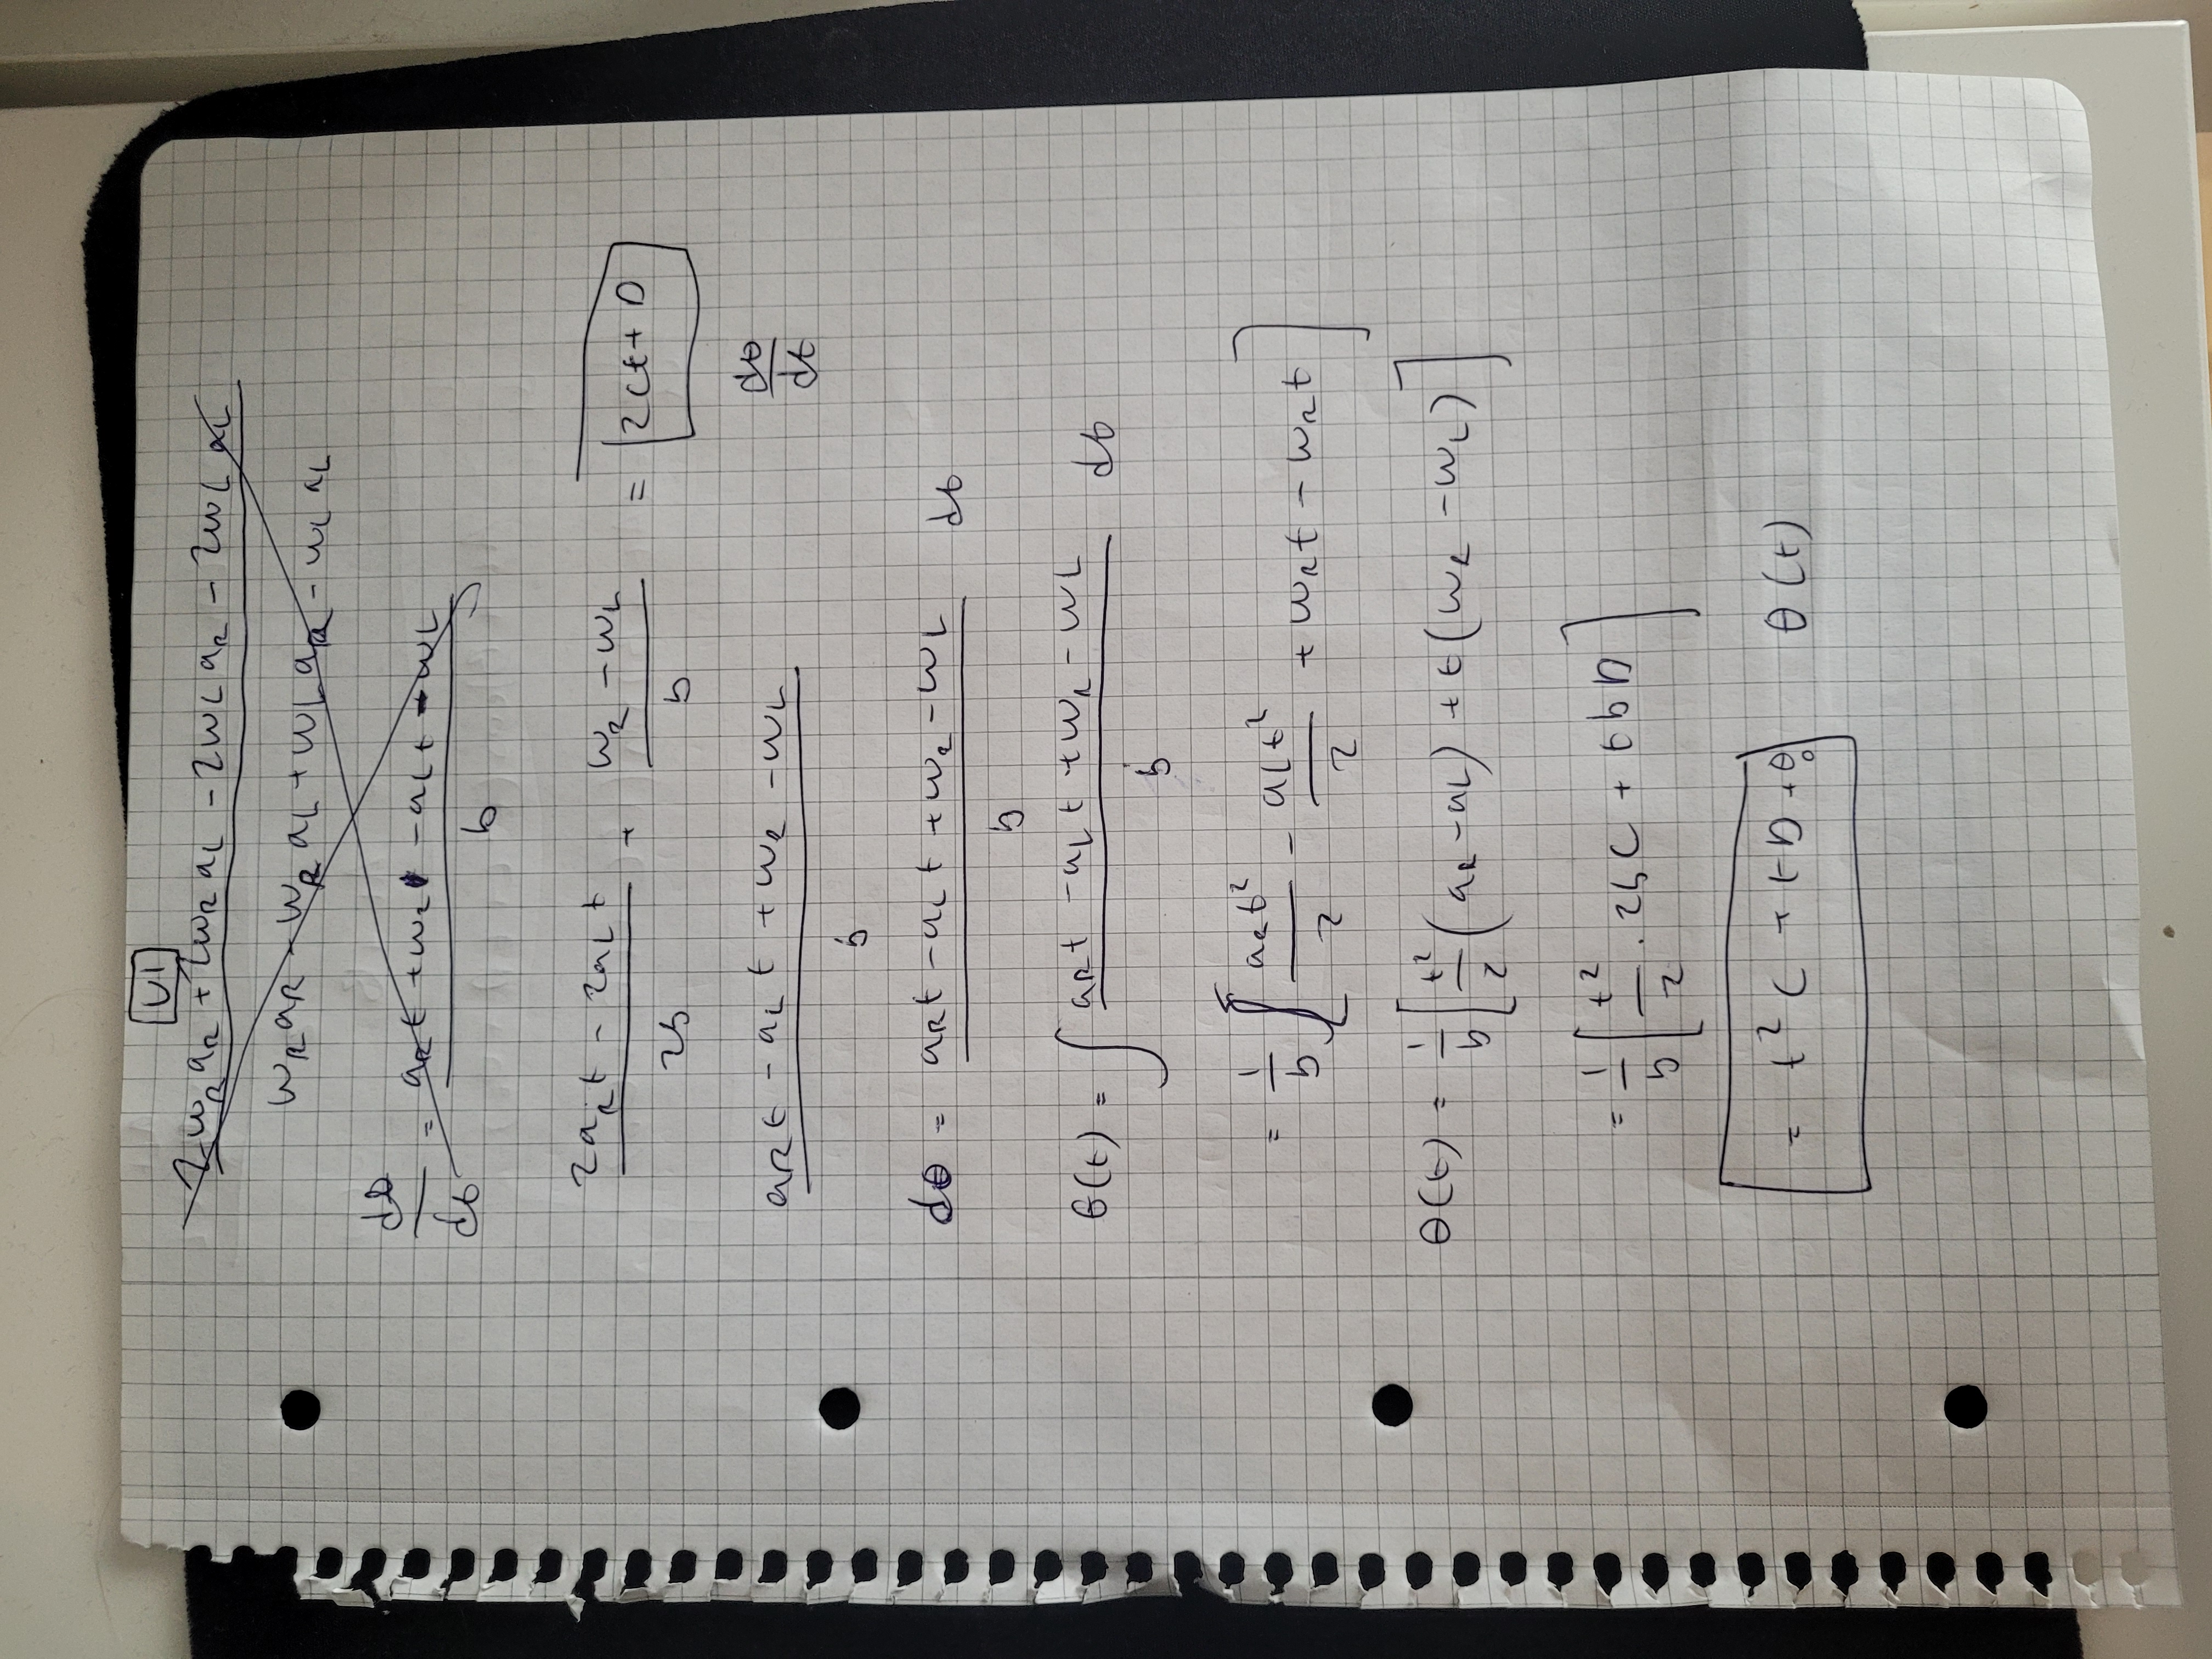 VI
2w_R a_R + 2w_R a_L - 2w_L a_R - 2w_L a_L
w_R a_R - w_R a_L + w_L a_R - w_L a_L
dθ/dt = (a_R t + w_R - a_L t - w_L)/b
(2a_R t - 2a_L t)/2b + (w_R - w_L)/b = 2Ct + D
(a_R t - a_L t + w_R - w_L)/b dθ/dt
dθ = (a_R t - a_L t + w_R - w_L)/b dt
θ(t) = ∫ (a_R t - a_L t + w_R - w_L)/b dt
= 1/b [ a_R t²/2 - a_L t²/2 + w_R t - w_R t ]
θ(t) = 1/b [ t²/2 (a_R - a_L) + t(w_R - w_L) ]
= 1/b [ t²/2 · 2bC + tbD ]
= t²C + tD + θ₀ θ(t)